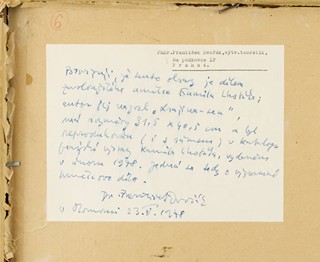 6
PhDr.František Dvořák,výtv.teoretik.
Na podkovce 17
Praha 4.
Potvrzuji, že tento obraz je dílem
umělce Kamila Lhotáka;
autor jej nazval „Krajina
má rozměry 31,5 x 40,5 cm a byl
reprodukován ( i s rámem ) v katalogu
výstavy Kamila Lhotáka,
v únoru 1978. jedná se tedy o významné
umělcovo dílo.
Dr František Dvořák
v Olomouci 23. 1978